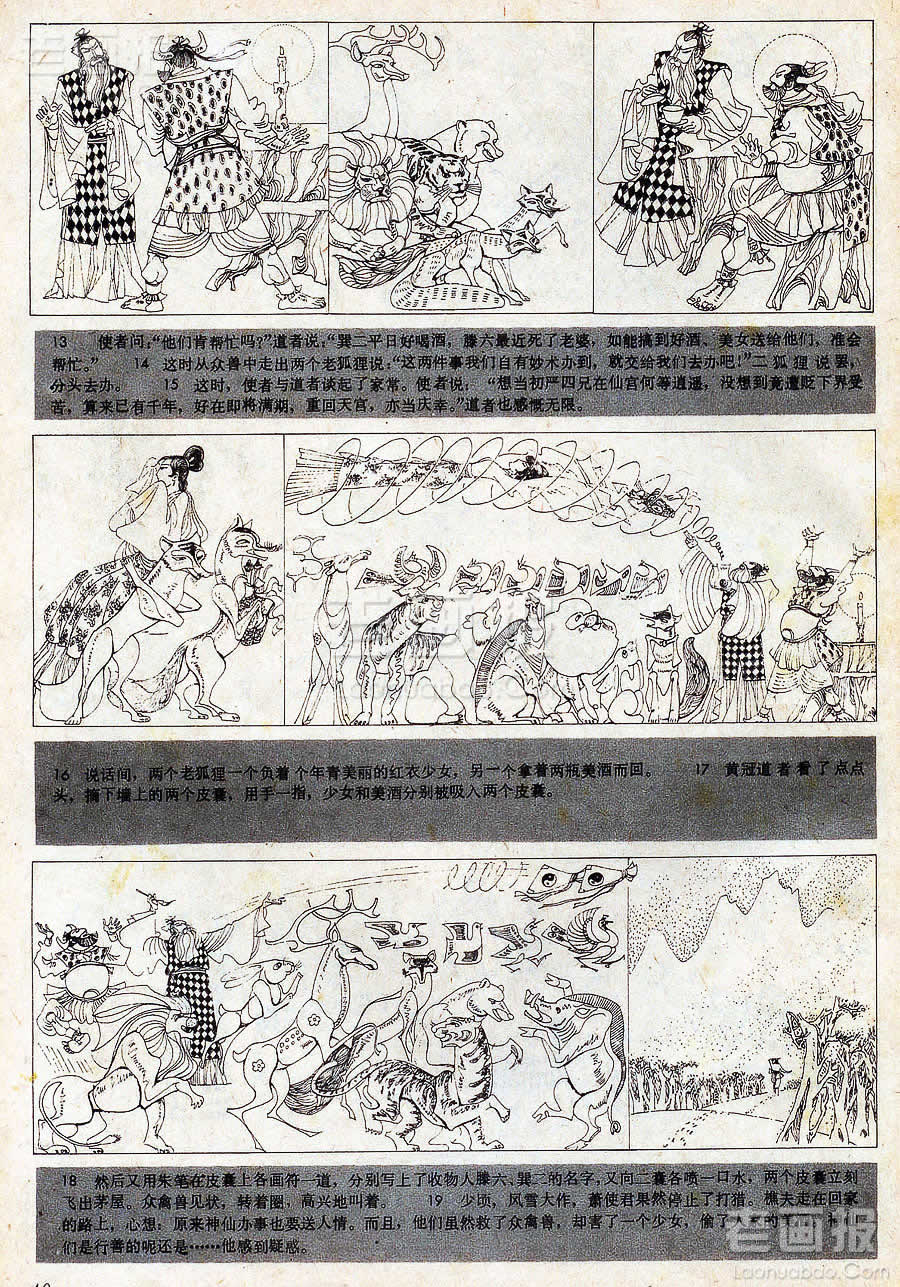 老画报
13 使者问:“他们肯帮忙吗?”道者说:“巽二平日好喝酒,滕六最近死了老婆,如能搞到好酒、美女送给他们,准会
帮忙。” 14 这时从众兽中走出两个老狐狸说:“这两件事我们自有妙术办到,就交给我们去办吧!”二狐狸说罢,
分头去办。 15 这时,使者与道者谈起了家常。使者说:“想当初严四兄在仙宫何等逍遥,没想到竟遭贬下界受
苦,算来已有千年,好在即将满期,重回天宫,亦当庆幸。”道者也感慨无限。
老画报
Laohuabao.Com
16 说话间,两个老狐狸一个负着个年青美丽的红衣少女,另一个拿着两瓶美酒而回。 17 黄冠道者看了点点
头,摘下墙上的两个皮囊,用手一指,少女和美酒分别被吸入两个皮囊。
18 然后又用朱笔在皮囊上各画符一道,分别写上了收物人滕六、巽二的名字,又向二囊各喷一口水,两个皮囊立刻
飞出茅屋。众禽兽见状,转着圈,高兴地叫着。 19 少顷,风雪大作,萧使君果然停止了打猎。樵夫走在回家
的路上,心想:原来神仙办事也要送人情。而且,他们虽然救了众禽兽,却害了一个少女,偷了人家的
们是行善的呢还是……他感到疑惑。
老画报
Laohuabao.Com